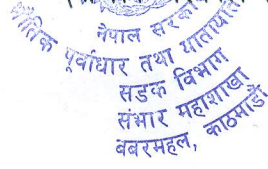 नेपाल सरका
भौतिक पूर्वाधार तथा यातायात
सडक विभाग
संभार महाशाखा
बबरमहल, काठमाडौं